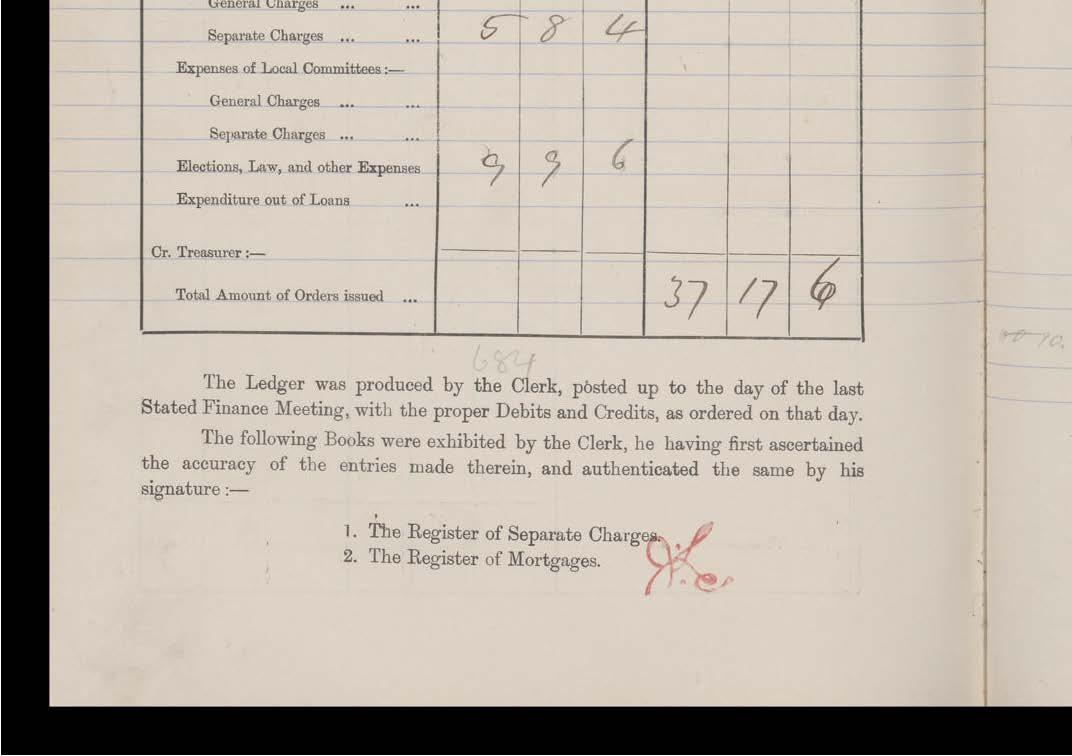 General Charges ... ...
Separate Charges ... ... 5 8 4
Expenses of Local Committees :—
General Charges ... ...
Separate Charges ... ...
Elections, Law, and other Expenses 9 9 6
Expenditure out of Loans ...
Cr. Treasurer :—
Total Amount of Orders issued ... 37 17 6
684
The Ledger was produced by the Clerk, posted up to the day of the last
Stated Finance Meeting, with the proper Debits and Credits, as ordered on that day.
The following Books were exhibited by the Clerk, he having first ascertained
the accuracy of the entries made therein, and authenticated the same by his
signature :—
1. The Register of Separate Charges.
2. The Register of Mortgages.